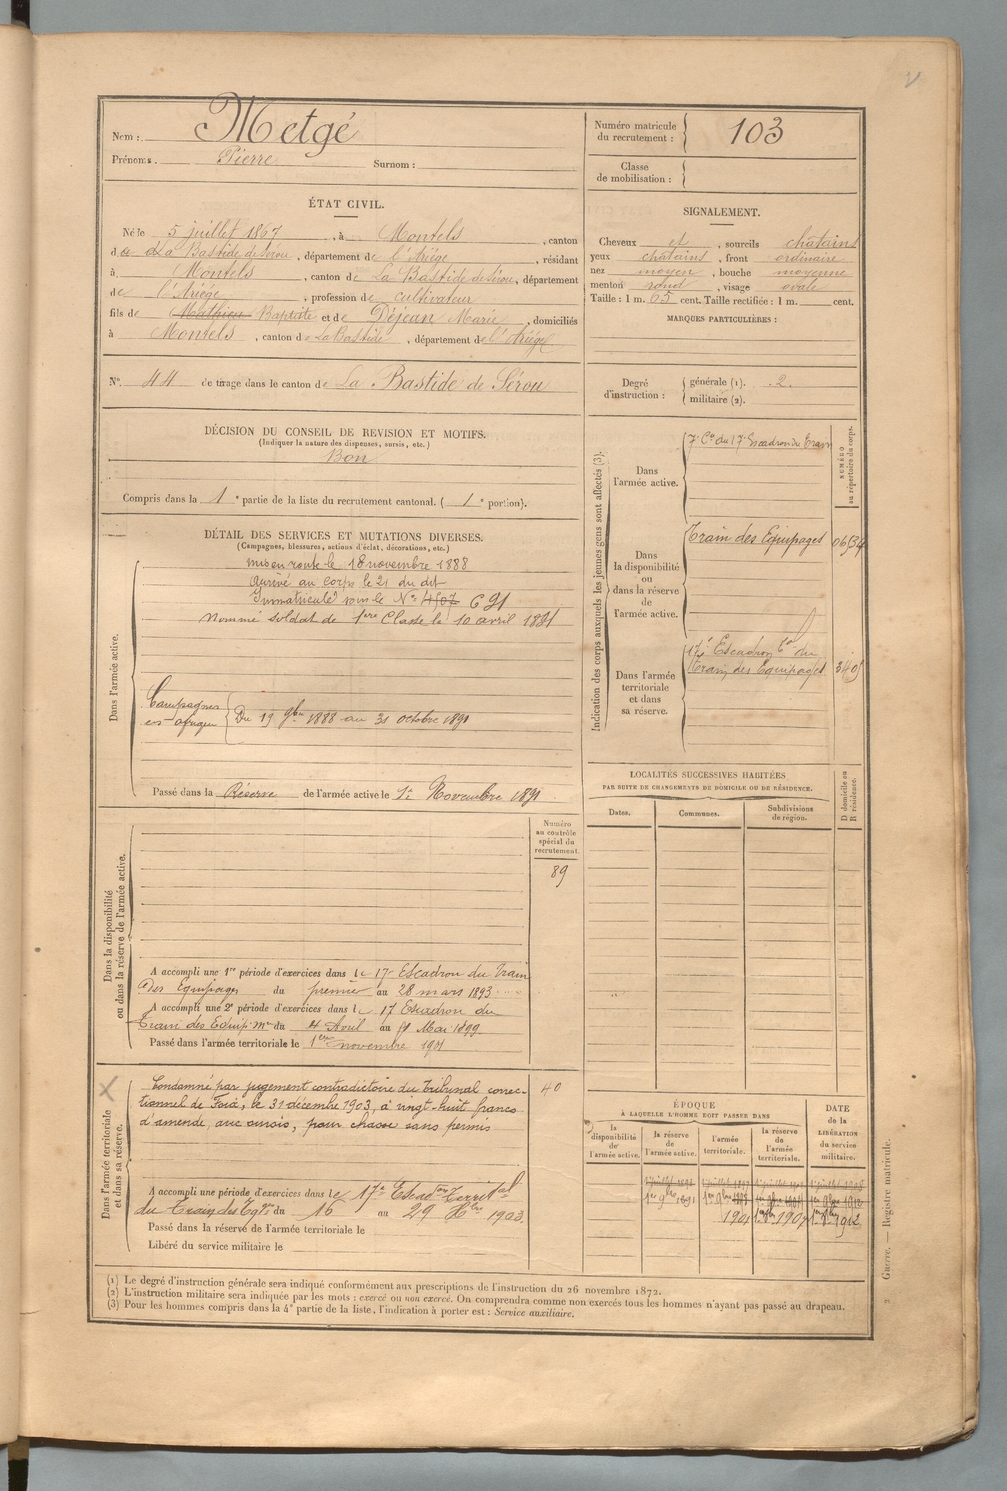 Nom : Metgé
Prénoms . Pierre Surnom :
Numéro matricule du recrutement : 103
Classe de mobilisation :
ÉTAT CIVIL.
Né le 5 juillet 1867, à Montels, canton
de La Bastide de Sérou, département de l'Ariège, résidant
à Montels, canton de La Bastide de Sérou, département
de l'Ariège, profession de cultivateur
fils de Mathieu Baptiste et de Déjean Marie, domiciliés
à Montels, canton de La Bastide, département de l'Ariège
SIGNALEMENT.
Cheveux et, sourcils châtains
yeux châtains, front ordinaire
nez moyen, bouche moyenne
menton rond, visage ovale
Taille : 1 m. 65 cent. Taille rectifiée : 1 m. cent.
MARQUES PARTICULIÈRES :
N° 44 de tirage dans le canton de La Bastide de Sérou
Degré d'instruction : générale (1). 2.
militaire (2).
DÉCISION DU CONSEIL DE REVISION ET MOTIFS.
(Indiquer la nature des dispenses, sursis, etc.)
Bon
Compris dans la 1e partie de la liste du recrutement cantonal. ( 1e portion).
DÉTAIL DES SERVICES ET MUTATIONS DIVERSES.
(Campagnes, blessures, actions d'éclat, décorations, etc.)
Dans l'armée active.
mis en route le 18 novembre 1888
Arrivé au corps le 21 du dit
Immatriculé sous le N° 691
Nommé soldat de 1ère Classe le 10 avril 1891
Campagnes
en afrique Du 19 9bre 1888 au 31 octobre 1891
Passé dans la Réserve de l'armée active le 1er Novembre 1891
Indication des corps auxquels les jeunes gens sont affectés (3).
NUMÉRO au répertoire du corps.
Dans l'armée active.
7e Cie du 17e Escadron du Train
Dans la disponibilité ou dans la réserve de l'armée active.
Train des Equipages
Dans l'armée territoriale et dans sa réserve.
17e Escadron du
Train des Equipages
LOCALITÉS SUCCESSIVES HABITÉES
PAR SUITE DE CHANGEMENTS DE DOMICILE OU DE RÉSIDENCE.
Dates. Communes. Subdivisions de région. D domicile ou R résidence.
Dans la disponibilité ou dans la réserve de l'armée active.
Numéro au contrôle spécial du recrutement.
89
A accompli une 1re période d'exercices dans le 17e Escadron du Train
des Equipages du premier au 28 mars 1893
A accompli une 2e période d'exercices dans le 17 Escadron du
Train des Equip. mre du 4 Avril au 1 Mai 1899.
Passé dans l'armée territoriale le 1er novembre 1901
Dans l'armée territoriale et dans sa réserve.
Condamné par jugement contradictoire du Tribunal correc-
tionnel de Foix, le 31 décembre 1903, à vingt-huit francs
d'amende, avec sursis, pour chasse sans permis
40
A accompli une période d'exercices dans le 17e Escadron Territal
du Train des Eqges du 16 au 29 Xbre 1903.
Passé dans la réserve de l'armée territoriale le
Libéré du service militaire le
ÉPOQUE
À LAQUELLE L'HOMME DOIT PASSER DANS
la disponibilité de l'armée active. la réserve de l'armée active. l'armée territoriale. la réserve de l'armée territoriale.
DATE de la LIBÉRATION du service militaire.
1er 9bre 1891
1901 1er 9bre 1907 1er 9bre 1912
(1) Le degré d'instruction générale sera indiqué conformément aux prescriptions de l'instruction du 26 novembre 1872.
(2) L'instruction militaire sera indiquée par les mots : exercé ou non exercé. On comprendra comme non exercés tous les hommes n'ayant pas passé au drapeau.
(3) Pour les hommes compris dans la 4e partie de la liste, l'indication à porter est : Service auxiliaire.
Guerre. — Registre matricule.